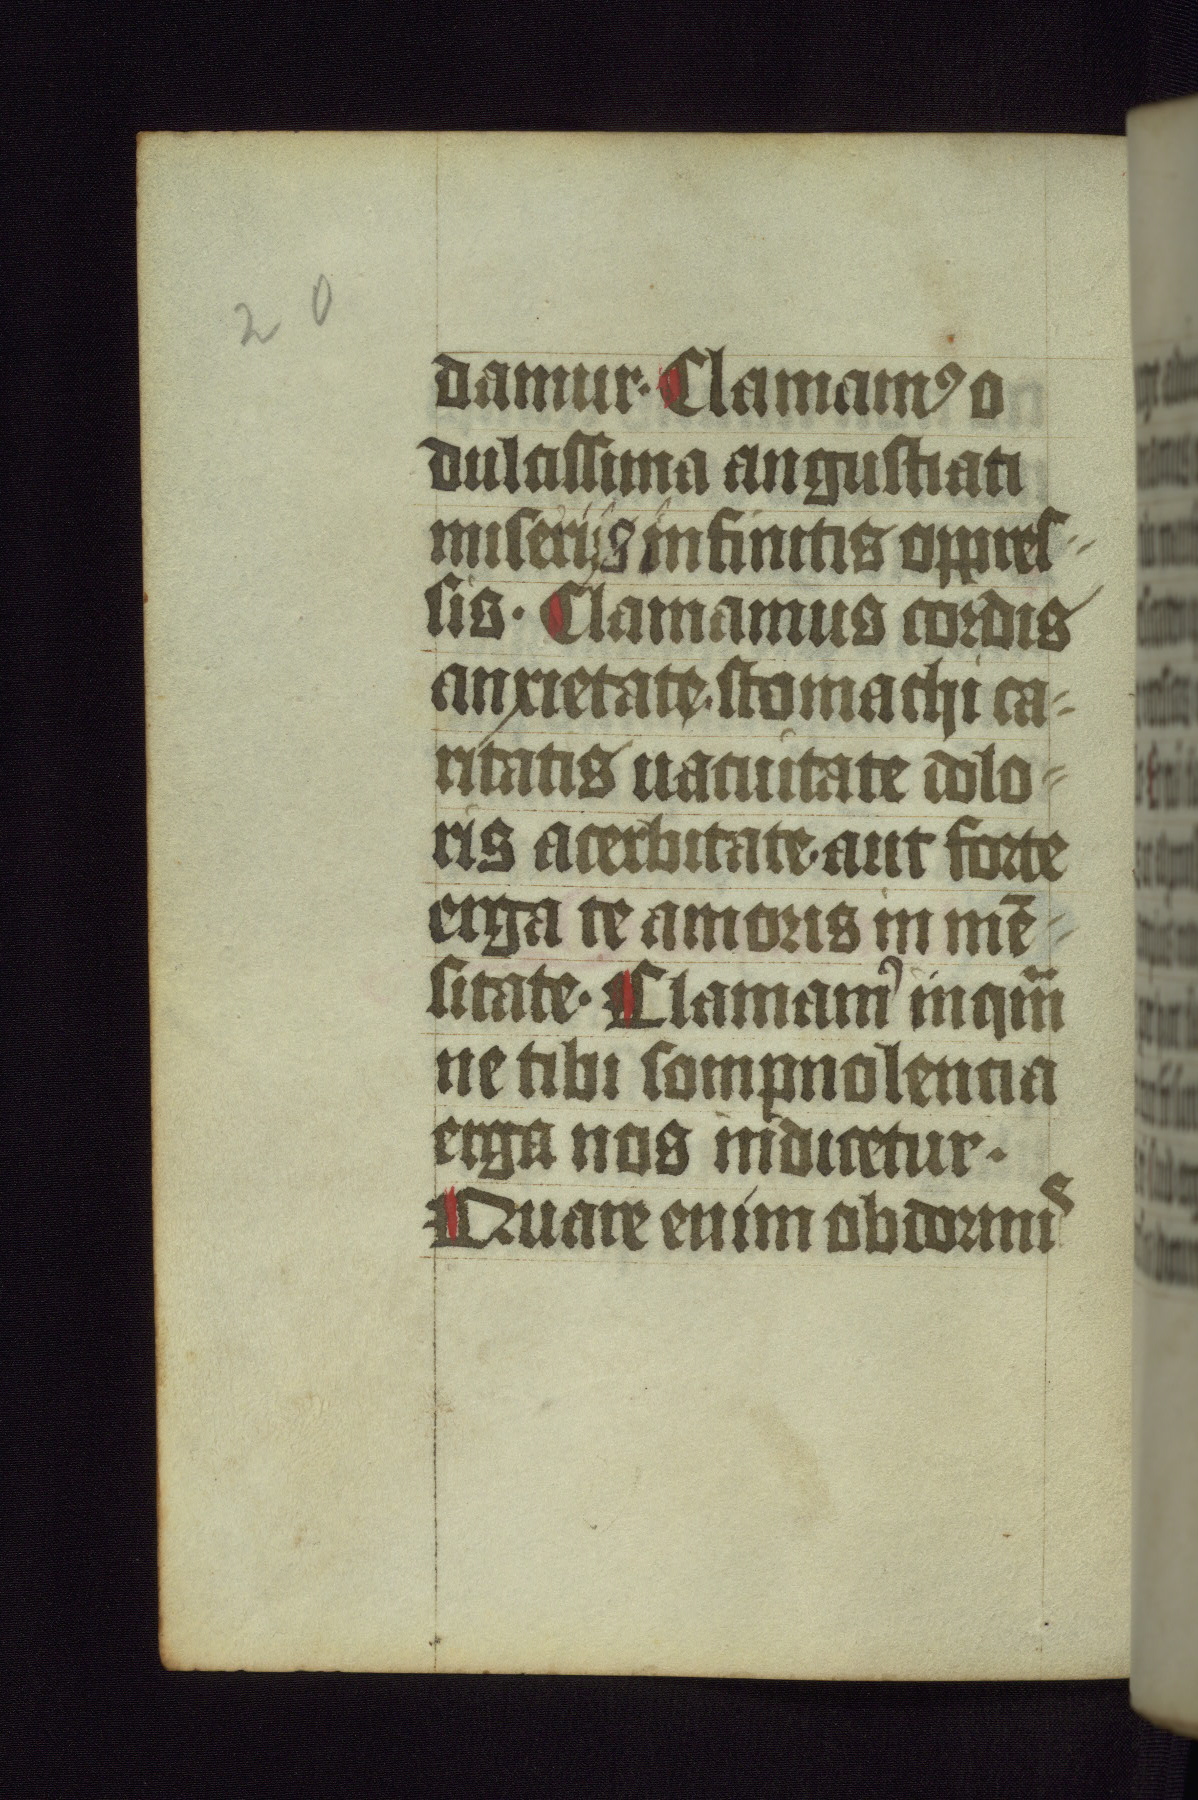 20
damur. Clamamꝰ o
dulcissima angustiati
miserijs infinitis oppres-
sis. Clamamus cordis
anxietate. stomachi ca-
ritatis uacuitate dolo-
ris acerbitate. aut forte
erga te amoris in mē-
sitate. Clamamꝰ inqm̄
ne tibi sompnolencia
erga nos indicetur.
Quare enim obdormis